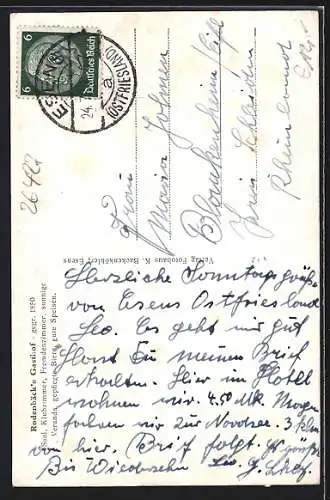 Deutsches Reich
6 6
ESENS
(OSTFRIESLAND)
a
24.
26424
Frau
Maria Johnen
Blankenheim/Eifel
Kreis Schleiden
Rheinland
Rodenbäck's Gasthof - gegr. 1850
Saal, Klubzimmer, Fremdenzimmer, sonnige
Veranda, gepflegte Biere, gute Speisen.
Verlag Fotohaus K. Backenköhler, Esens
Herzliche Sonntagsgrüße
von Esens Ostfriesland
Leo. Es geht mir gut
Hast Du meinen Brief
erhalten. Hier im Hotel
wohnen wir. 4.50 Mk Morgen
fahren wir zur Nordsee. 3 klm
von hier. Brief folgt. Es grüßt
Bis Wiedersehn Leo